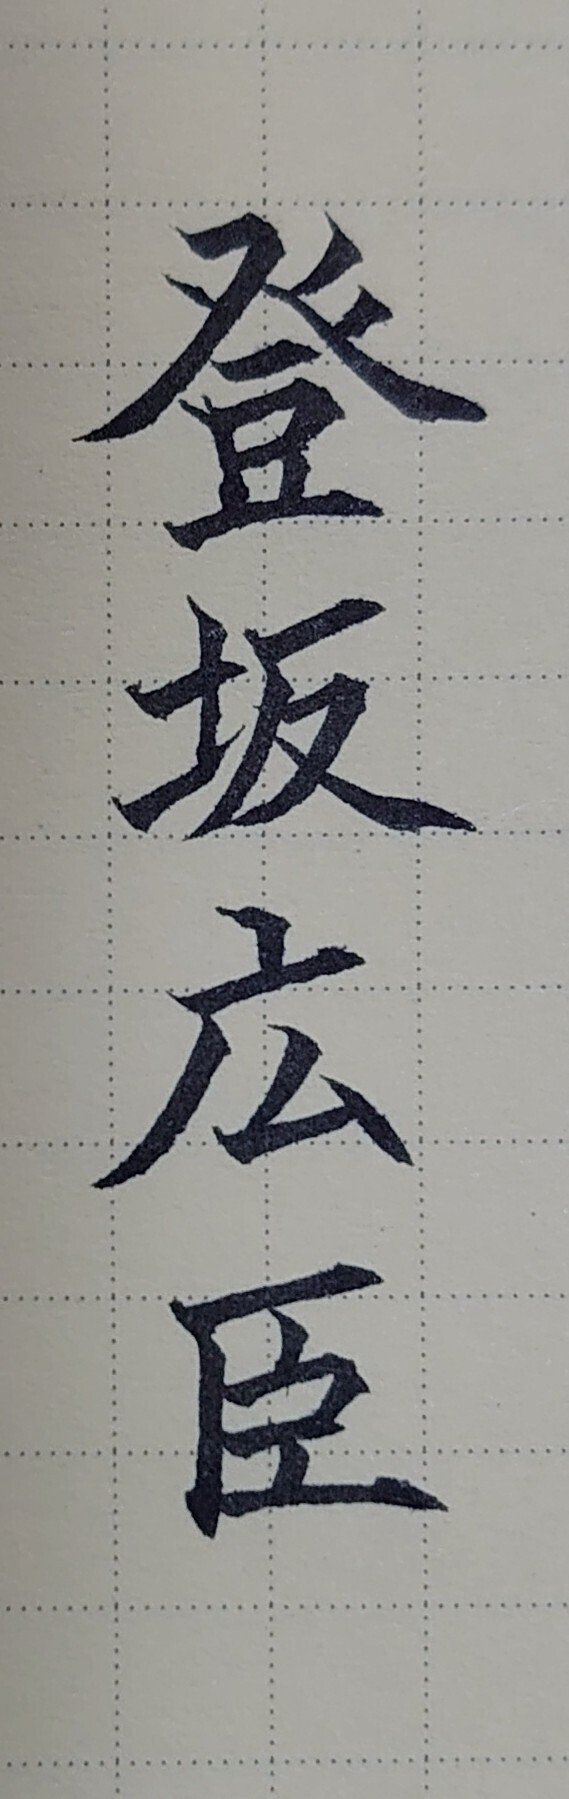 登坂広臣